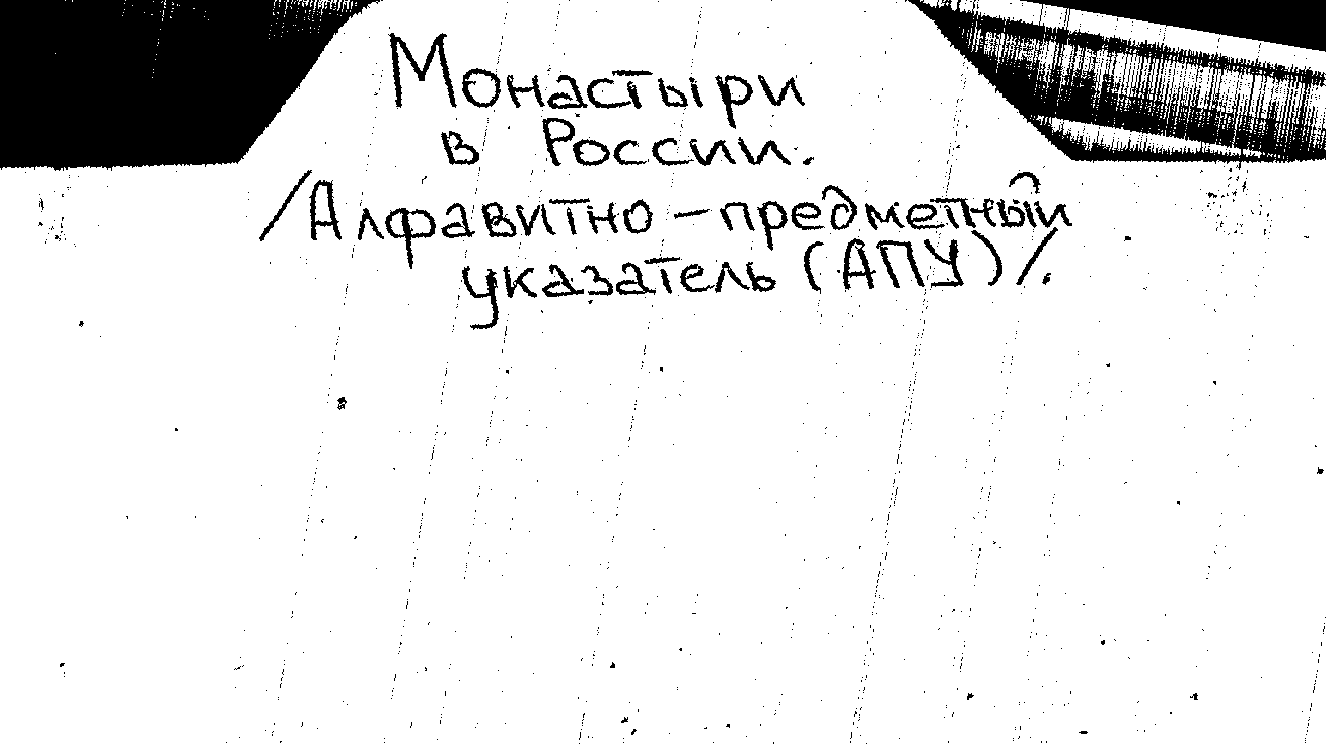 Монастыри
в России.
/Алфавитно-предметный
указатель (АПУ)/.